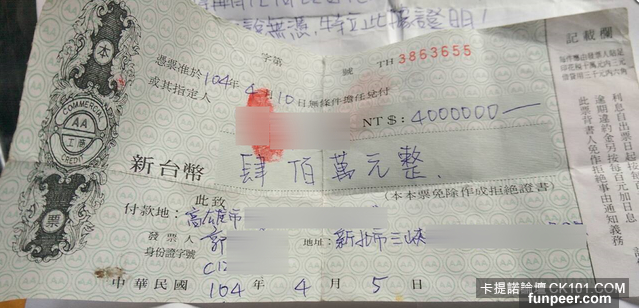 字第 號 TH 3863655
憑票准於104年4月10日無條件擔任兌付
或其指定人
NT$: 4000000—
新台幣 肆佰萬元整
此致
(本本票免除作成拒絕證書)
付款地: 高雄市
發票人 郭
地址: 新北市三峽
身份證字號
中華民國 104 年 4 月 5 日
本
COMMERCIAL
AA
工商
CREDIT
票
記載欄
利息自出票日起
逾期違約金另按每百元加日息
此票背書人免作拒絕事由通知義務
卡提諾論壇 CK101.COM
funpeer.com